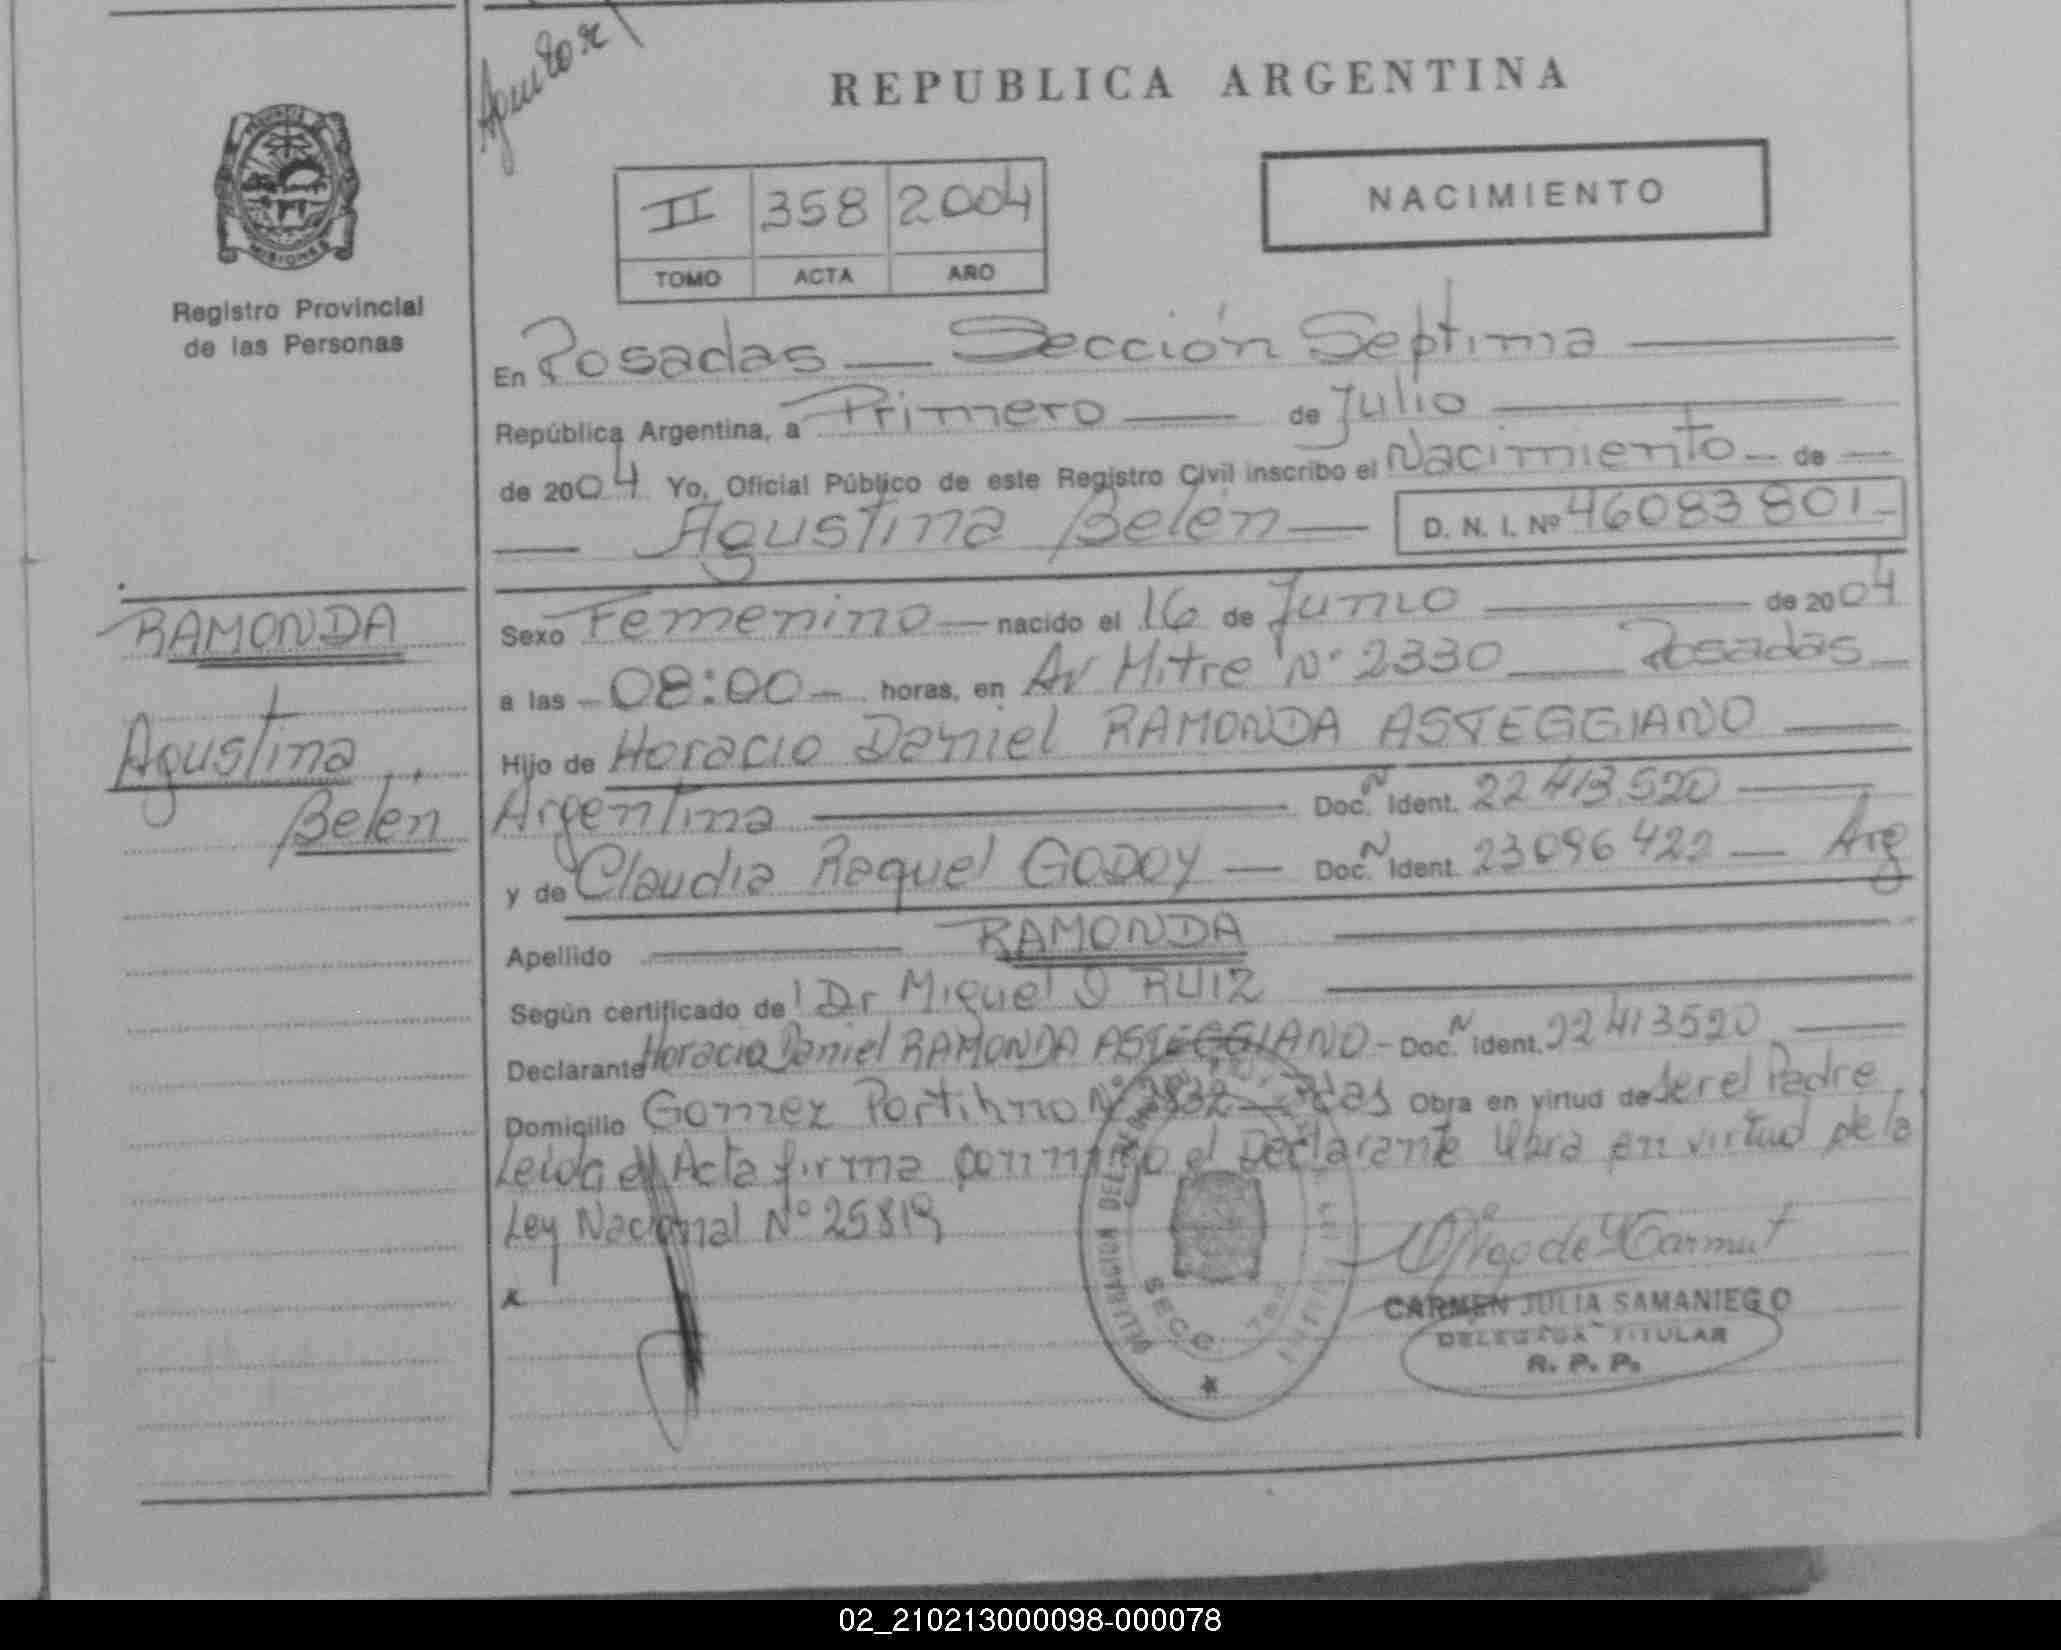 REPUBLICA ARGENTINA
NACIMIENTO
II 358 2004
TOMO ACTA AÑO
PROVINCIA
MISIONES
Registro Provincial
de las Personas
En Posadas — Sección Septima —
República Argentina, a Primero — de Julio —
de 2004 Yo, Oficial Público de este Registro Civil inscribo el Nacimiento — de —
— Agustina Belén — D. N. I. Nº 46083801-
RAMONDA
Agustina
Belén
Sexo Femenino — nacido el 16 de Junio — de 2004
a las - 08:00 - horas, en Av Mitre Nº 2330 — Posadas —
Hijo de Horacio Daniel RAMONDA ASTEGGIANO —
Argentina — Doc. N Ident. 22 413.520 —
y de Claudia Raquel GODOY — Doc. N Ident. 23096422 — Arg
Apellido — RAMONDA —
Según certificado de Dr Miguel O RUIZ —
Declarante Horacio Daniel RAMONDA ASTEGGIANO - Doc. N Ident. 22413520 —
Domicilio Gomez Portihno Nº 2832 — Obra en virtud de ser el Padre
Leida el Acta firma conmigo el Declarante Obra en virtud de la
Ley Nacional Nº 25819
x
SECC. 7ma
CARMEN JULIA SAMANIEGO
DELEGADA TITULAR
R. P. P.
02_210213000098-000078